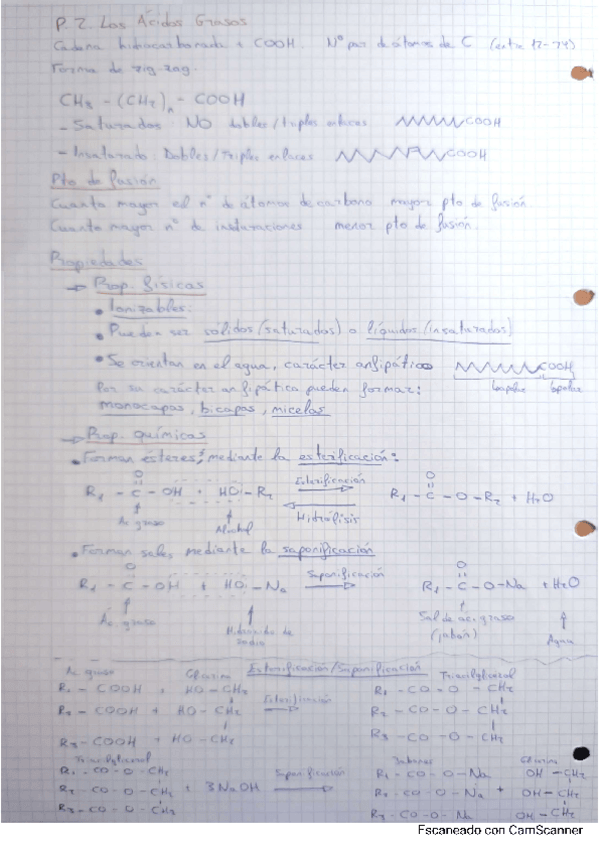 P. 2. Los Ácidos Grasos
Cadena hidrocarbonada + COOH. Nº par de átomos de C (entre 12-24)
Forma de zig-zag.
CH3 - (CH2)n - COOH
- Saturados: NO dobles/triples enlaces COOH
- Insaturado: Dobles/Triples enlaces COOH
Pto de fusión
Cuanto mayor el nº de átomos de carbono mayor pto de fusión.
Cuanto mayor nº de insaturaciones menor pto de fusión.
Propiedades
→ Prop. físicas
• Ionizables.
• Pueden ser solidos (saturados) o líquidos (insaturados)
• Se orientan en el agua, carácter anfipático COOH
Por su carácter anfipático pueden formar:
monocapas, bicapas, micelas
→ Prop. químicas
• Forman ésteres, mediante la esterificación:
O Esterificación O
R1 - C - OH + HO - R2 R1 - C - O - R2 + H2O
Hidrólisis
Ac graso Alcohol
• Forman sales mediante la saponificación
O Saponificación O
R1 - C - OH + HO - Na R1 - C - O - Na + H2O
Ác. graso Hidróxido de sodio Sal de ác. graso (jabón) Agua
Esterificación/Saponificación
Ac graso Glicerina Triacilglicerol
R1 - COOH + HO - CH2 R1 - CO - O - CH2
R2 - COOH + HO - CH2 Esterificación R2 - CO - O - CH2
R3 - COOH + HO - CH2 R3 - CO - O - CH2
Triacilglicerol Jabones Glicerina
R1 - CO - O - CH2 R1 - CO - O - Na OH - CH2
R2 - CO - O - CH2 + 3NaOH Saponificación R2 - CO - O - Na + OH - CH2
R3 - CO - O - CH2 R3 - CO - O - Na OH - CH2
Escaneado con CamScanner